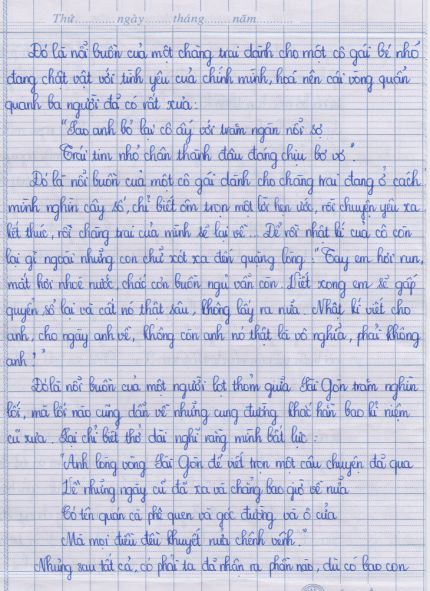 Thứ............ngày............tháng............năm............
Đó là nỗi buồn của một chàng trai dành cho một cô gái bé nhỏ
đang chật vật với tình yêu của chính mình, hoá nên cái vòng quẩn
quanh ba người đã có rất xưa:
"Sao anh bỏ lại cô ấy với trăm ngàn nỗi sợ
Trái tim nhỏ chân thành đâu đáng chịu bơ vơ".
Đó là nỗi buồn của một cô gái dành cho chàng trai đang ở cách
mình nghìn cây số, chỉ biết ôm trọn một lời hẹn ước, rồi chuyện yêu xa
kết thúc, rồi chàng trai của mình sẽ lại về... Để rồi nhật kí của cô còn
lại gì ngoài những con chữ xót xa đến quặng lòng: "Tay em hơi run,
mắt hơi nhoè nước, chắc cơn buồn ngủ vẫn còn. Viết xong em sẽ gấp
quyển sổ lại và cất nó thật sâu, không lấy ra nữa. Nhật kí viết cho
anh, cho ngày anh về, không còn anh nó thật là vô nghĩa, phải không
anh?"
Đó là nỗi buồn của một người lọt thỏm giữa Sài Gòn trăm nghìn
lối, mà lối nào cũng dẫn về những cung đường khắc hằn bao kỉ niệm
cũ xưa. Lại chỉ biết thở dài nghĩ rằng mình bất lực:
"Anh lòng vòng Sài Gòn để viết trọn một câu chuyện đã qua
Về những ngày cũ đã xa và chẳng bao giờ về nữa
Có tên quán cà phê quen và góc đường và ô cửa
Mà mọi điều đều khuyết nửa chênh vênh."
Nhưng sau tất cả, có phải ta đã nhận ra phần nào, dù có bao cơn